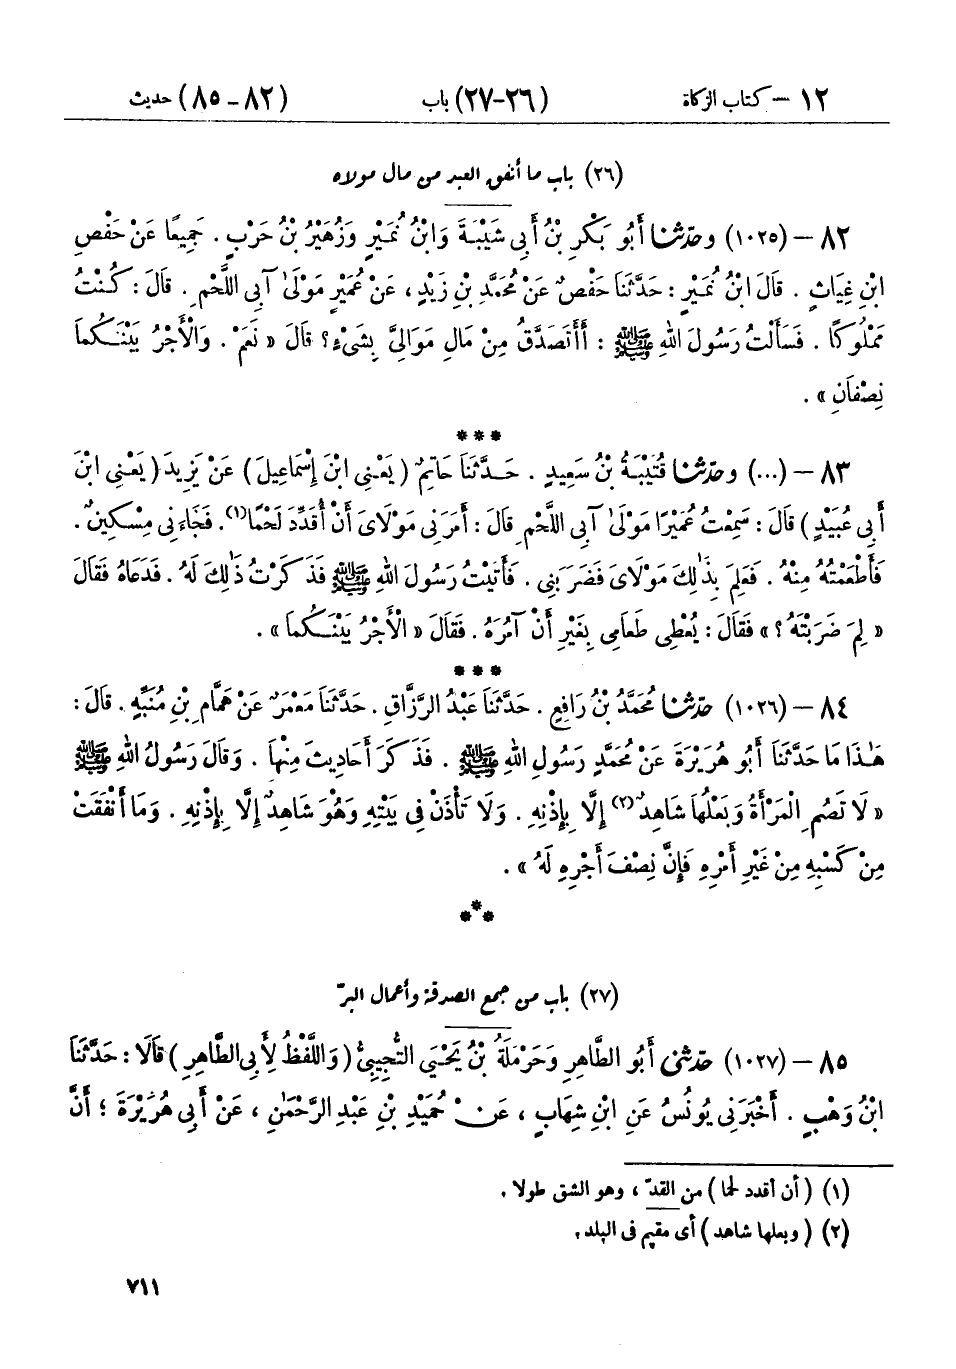 ١٢ – كتاب الزكاة (٢٦-٢٧) باب (٨٢-٨٥) حديث
(٢٦) باب ما أنفق العبد من مال مولاه
٨٢ – (١٠٢٥) وحَدَّثَنَا أَبُو بَكْرِ بْنُ أَبِي شَيْبَةَ وَابْنُ نُمَيْرٍ وَزُهَيْرُ بْنُ حَرْبٍ . جَمِيعًا عَنْ حَفْصِ
ابْنِ غِيَاثٍ . قَالَ ابْنُ نُمَيْرٍ : حَدَّثَنَا حَفْصٌ عَنْ مُحَمَّدِ بْنِ زَيْدٍ ، عَنْ عُمَيْرٍ مَوْلَىٰ آبِي اللَّحْمِ . قَالَ : كُنْتُ
مَمْلُوكًا . فَسَأَلْتُ رَسُولَ اللهِ ﷺ : أَأَتَصَدَّقُ مِنْ مَالِ مَوَالِيَّ بِشَيْءٍ ؟ قَالَ « نَعَمْ . وَالْأَجْرُ بَيْنَكُمَا
نِصْفَانِ » .
***
٨٣ – (...) وحَدَّثَنَا قُتَيْبَةُ بْنُ سَعِيدٍ . حَدَّثَنَا حَاتِمٌ ( يَعْنِي ابْنَ إِسْمَاعِيلَ ) عَنْ يَزِيدَ ( يَعْنِي ابْنَ
أَبِي عُبَيْدٍ ) قَالَ : سَمِعْتُ عُمَيْرًا مَوْلَىٰ آبِي اللَّحْمِ قَالَ : أَمَرَنِي مَوْلَايَ أَنْ أُقَدِّدَ لَحْمًا(١). فَجَاءَنِي مِسْكِينٌ .
فَأَطْعَمْتُهُ مِنْهُ . فَعَلِمَ بِذَٰلِكَ مَوْلَايَ فَضَرَبَنِي . فَأَتَيْتُ رَسُولَ اللهِ ﷺ فَذَكَرْتُ ذَٰلِكَ لَهُ . فَدَعَاهُ فَقَالَ
« لِمَ ضَرَبْتَهُ ؟ » فَقَالَ : يُعْطِي طَعَامِي بِغَيْرِ أَنْ آمُرَهُ . فَقَالَ « الْأَجْرُ بَيْنَكُمَا » .
***
٨٤ – (١٠٢٦) حَدَّثَنَا مُحَمَّدُ بْنُ رَافِعٍ . حَدَّثَنَا عَبْدُ الرَّزَّاقِ . حَدَّثَنَا مَعْمَرٌ عَنْ هَمَّامِ بْنِ مُنَبِّهٍ . قَالَ :
هَٰذَا مَا حَدَّثَنَا أَبُو هُرَيْرَةَ عَنْ مُحَمَّدٍ رَسُولِ اللهِ ﷺ . فَذَكَرَ أَحَادِيثَ مِنْهَا . وَقَالَ رَسُولُ اللهِ ﷺ
« لَا تَصُمِ الْمَرْأَةُ وَبَعْلُهَا شَاهِدٌ (٢) إِلَّا بِإِذْنِهِ . وَلَا تَأْذَنْ فِي بَيْتِهِ وَهُوَ شَاهِدٌ إِلَّا بِإِذْنِهِ . وَمَا أَنْفَقَتْ
مِنْ كَسْبِهِ مِنْ غَيْرِ أَمْرِهِ فَإِنَّ نِصْفَ أَجْرِهِ لَهُ » .
***
(٢٧) باب من جمع الصدقة وأعمال البرّ
٨٥ – (١٠٢٧) حَدَّثَنِي أَبُو الطَّاهِرِ وَحَرْمَلَةُ بْنُ يَحْيَى التُّجِيبِيُّ ( وَاللَّفْظُ لِأَبِي الطَّاهِرِ ) قَالَا : حَدَّثَنَا
ابْنُ وَهْبٍ . أَخْبَرَنِي يُونُسُ عَنِ ابْنِ شِهَابٍ ، عَنْ حُمَيْدِ بْنِ عَبْدِ الرَّحْمَٰنِ ، عَنْ أَبِي هُرَيْرَةَ ؛ أَنَّ
(١) ( أن أقدد لحما ) من القدّ ، وهو الشق طولا .
(٢) ( وبعلها شاهد ) أى مقيم فى البلد .
٧١١